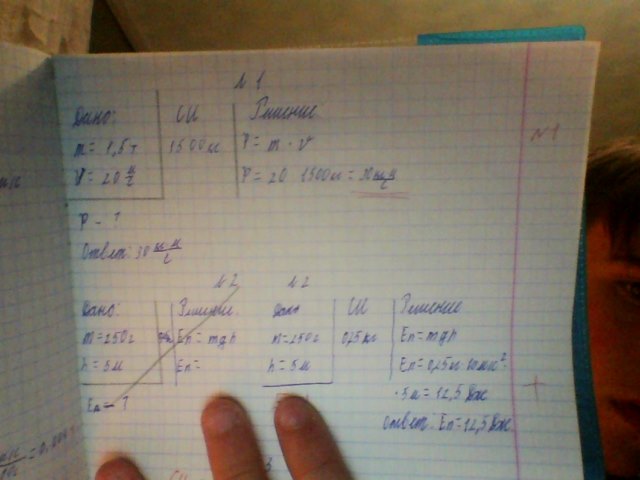 N 1
Дано: СИ Решение:
m = 1,5 т 1500 кг P = m · v
v = 20 м/с P = 20 1500 кг = 30 кг м/с
P - ?
Ответ: 30 кг м/с
N 1
N 2
Дано: Решение:
m = 250 г Eп = mgh
h = 5 м Eп =
Eп - ?
N 2
Дано СИ Решение
m = 250 г 0,25 кг Eп = mgh
h = 5 м Eп = 0,25 кг · 10 м/с²
· 5 м = 12,5 Дж
Ответ: Eп = 12,5 Дж
+
3